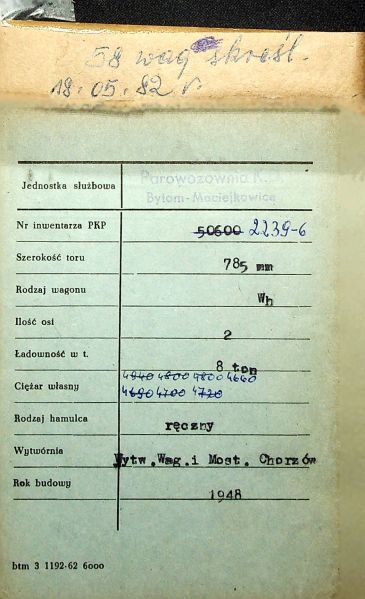 58 wag skreśl.
18.05.82 r.
Parowozownia K.D.
Jednostka służbowa
Bytom-Maciejkowice
Nr inwentarza PKP 50600 2239-6
Szerokość toru 785 mm
Rodzaj wagonu Wh
Ilość osi 2
Ładowność w t. 8 ton
4940 4800 4800 4640
Ciężar własny 4690 4700 4720
Rodzaj hamulca ręczny
Wytwórnia Wytw.Wag.i Most. Chorzów
Rok budowy 1948
btm 3 1192-62 6000